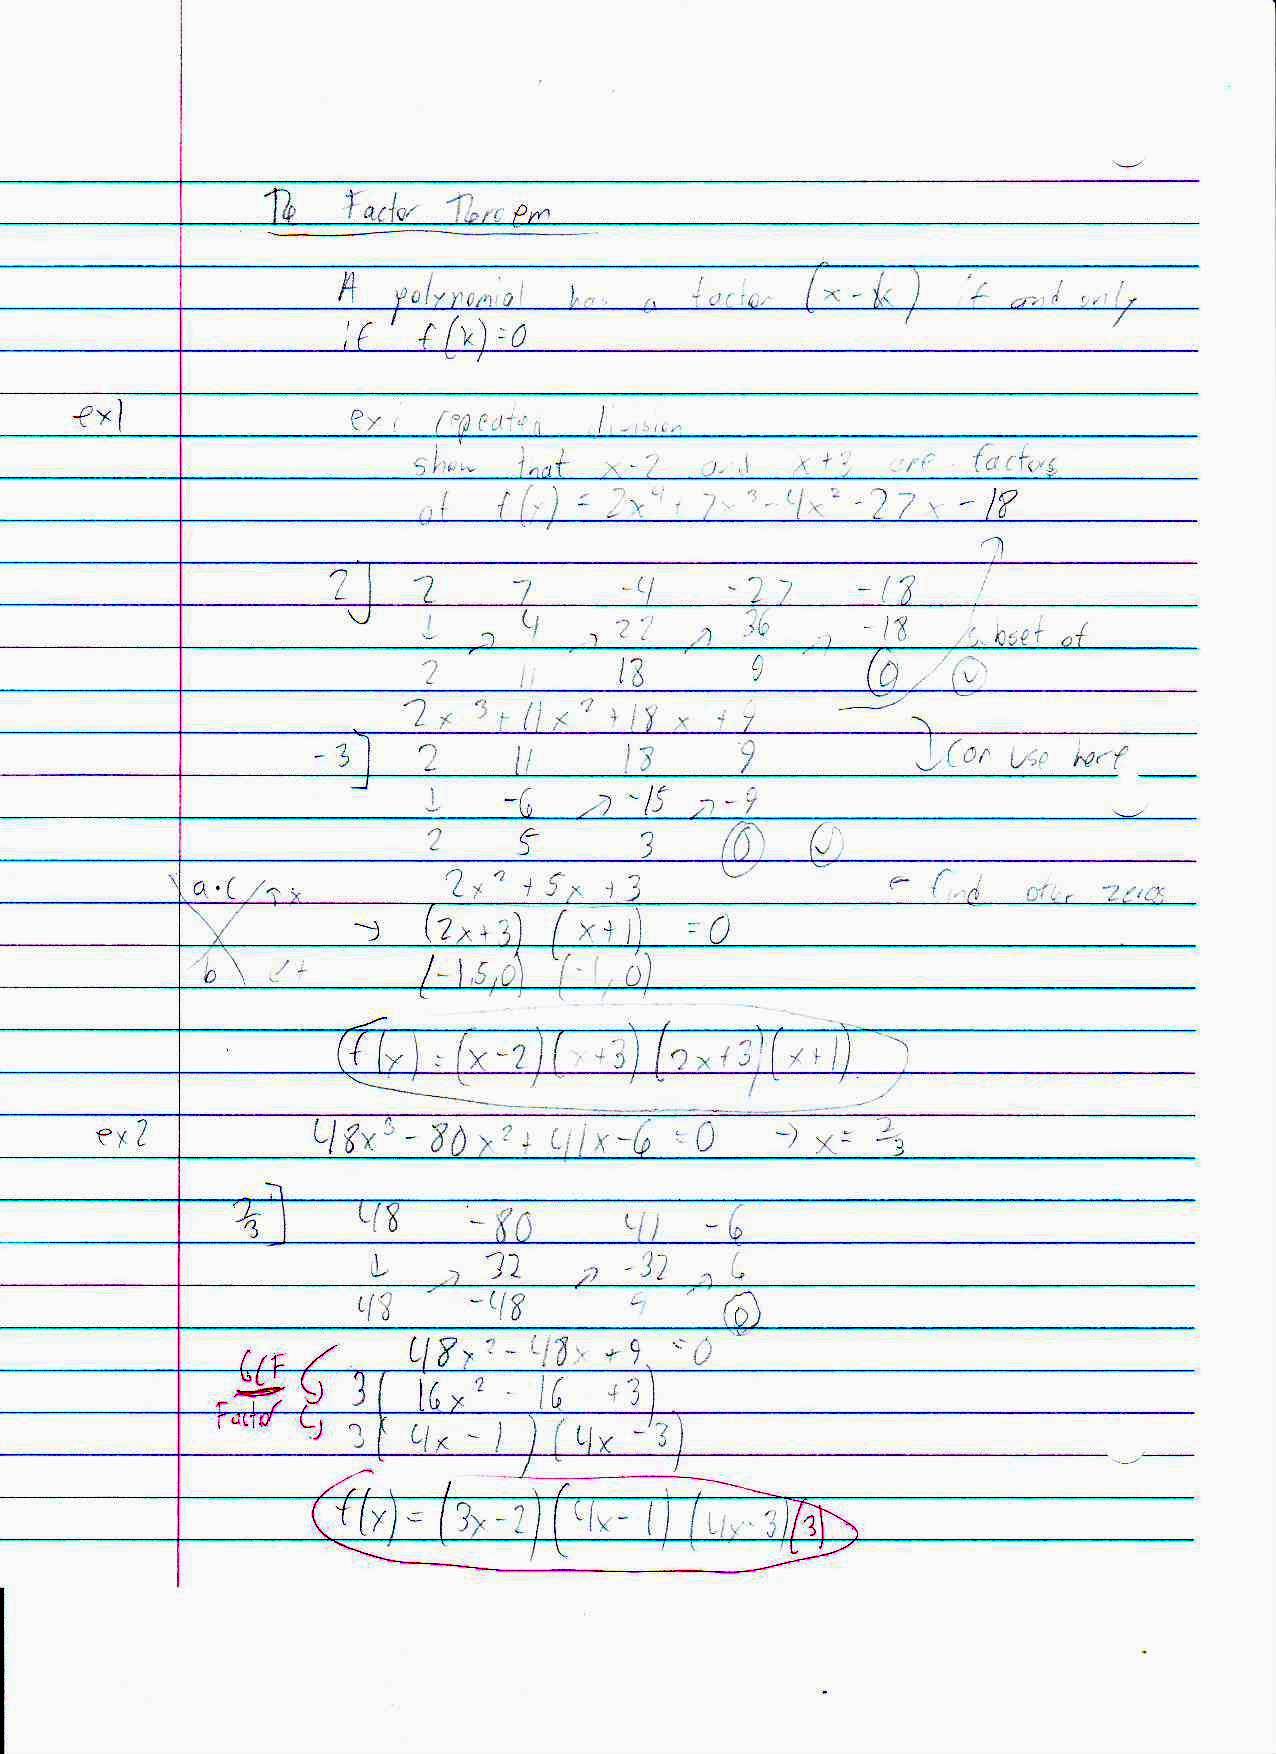 The Factor Theroem
A polynomial has a factor (x-k) if and only
if f(k)=0
ex1 ex: repeated division
show that x-2 and x+3 are factors
of f(x) = 2x⁴+7x³-4x²-27x-18
2] 2 7 -4 -27 -18
↓ ↗ 4 ↗ 22 ↗ 36 ↗ -18 subset of
2 11 18 9 0 ✓
2x³+11x²+18x+9
-3] 2 11 18 9 ↓ can use here
↓ -6 ↗ -15 ↗ -9
2 5 3 0 ✓
a·c 2x²+5x+3 - find other zeros
→ (2x+3) (x+1) =0
b (-1.5,0) (-1,0)
f(x)=(x-2)(x+3)(2x+3)(x+1)
ex2 48x³-80x²+41x-6=0 → x=2/3
2/3] 48 -80 41 -6
↓ ↗ 32 ↗ -32 ↗ 6
48 -48 9 0
48x²-48x+9=0
GCF 3(16x²-16 +3)
Factor 3(4x-1)(4x-3)
f(x)=(3x-2)(4x-1)(4x-3)(3)